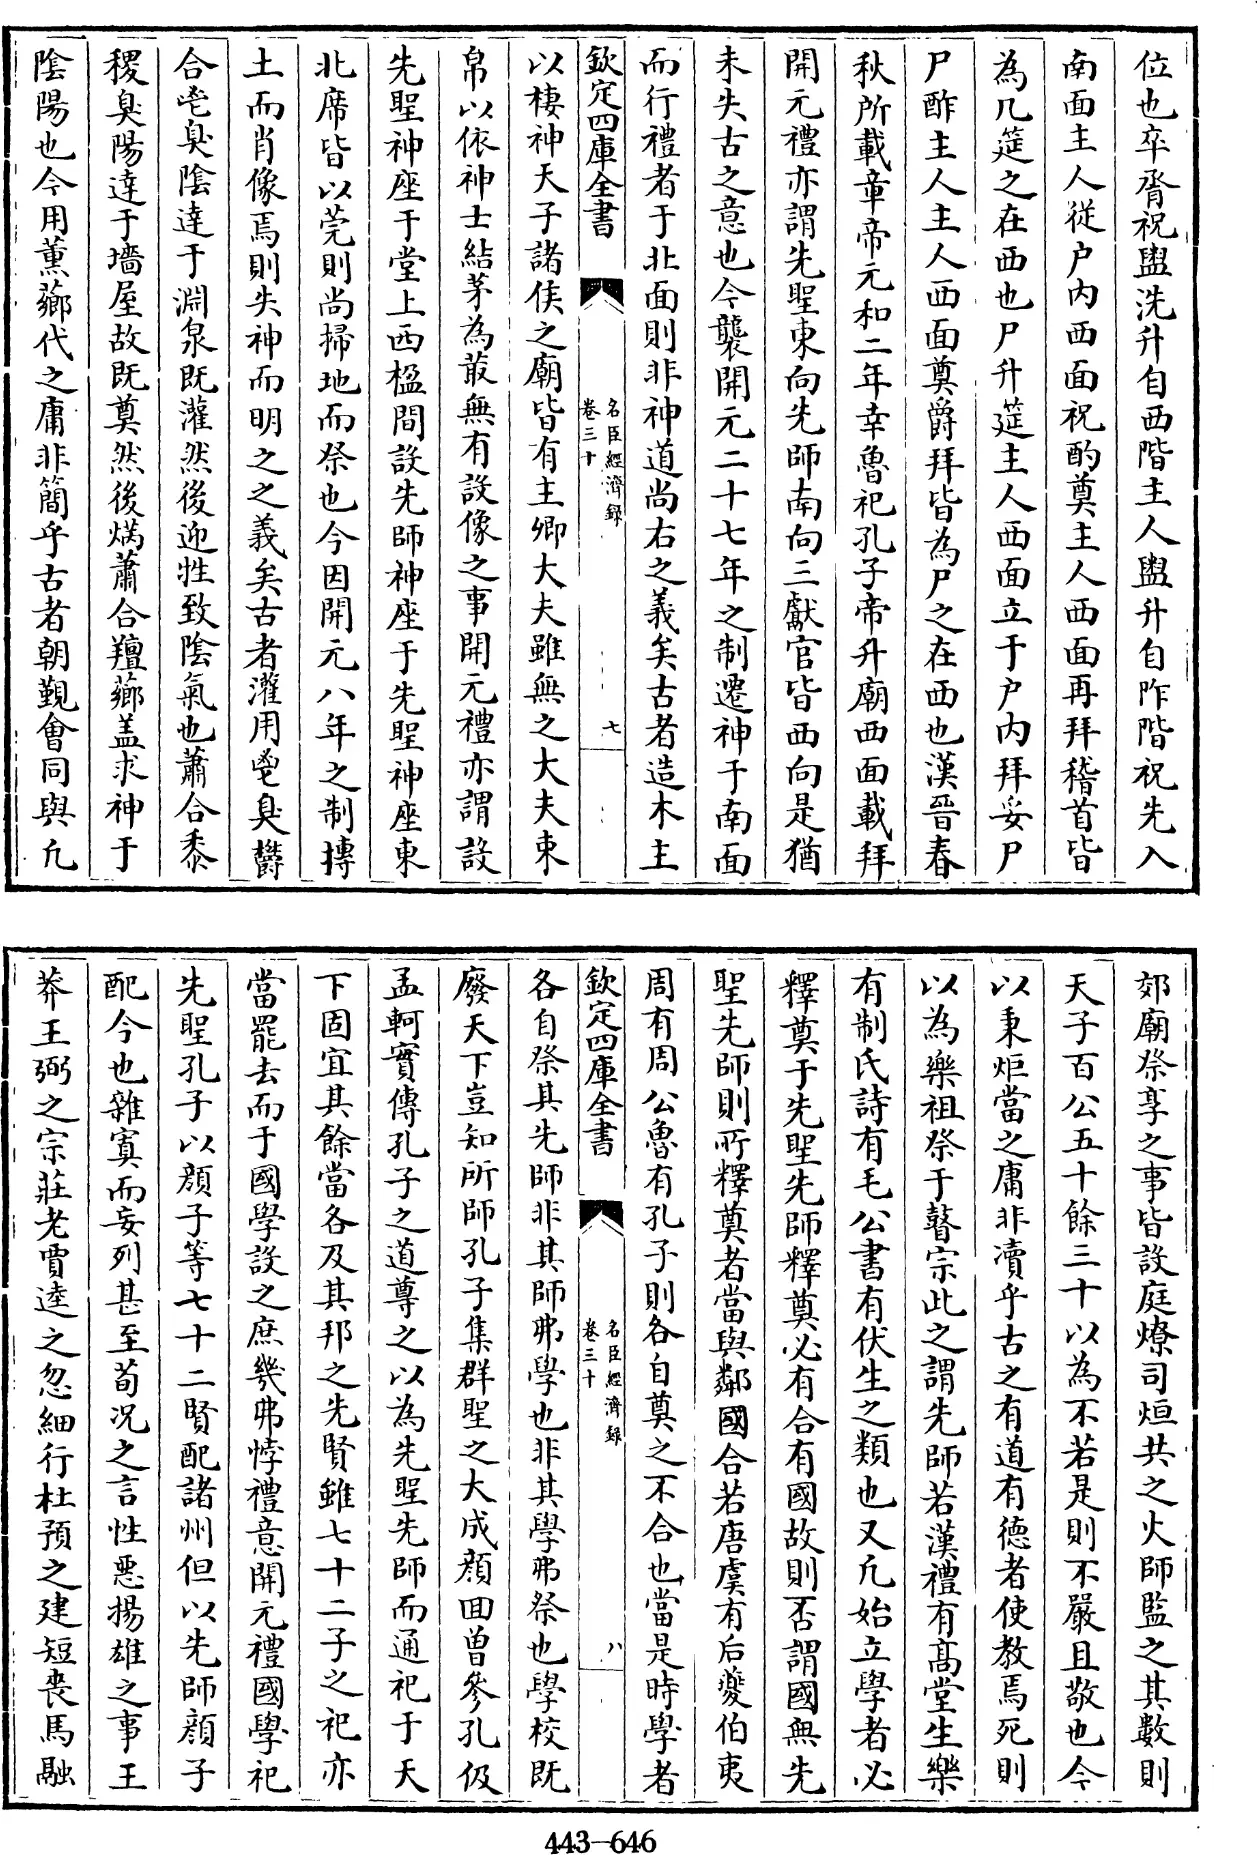 位也卒脀祝盥洗升自西階主人盥升自阼階祝先入
南面主人從户内西面祝酌奠主人西面再拜稽首皆
為几筵之在西也尸升筵主人西面立于户内拜妥尸
尸酢主人主人西面奠爵拜皆為尸之在西也漢晉春
秋所載章帝元和二年幸魯祀孔子帝升廟西面載拜
開元禮亦謂先聖東向先師南向三獻官皆西向是猶
未失古之意也今襲開元二十七年之制遷神于南面
而行禮者于北面則非神道尚右之義矣古者造木主
欽定四庫全書
名臣經濟錄
卷三十
七
以棲神天子諸侯之廟皆有主卿大夫雖無之大夫束
帛以依神士結茅為菆無有設像之事開元禮亦謂設
先聖神座于堂上西楹間設先師神座于先聖神座東
北席皆以莞則尚掃地而祭也今因開元八年之制摶
土而肖像焉則失神而明之之義矣古者灌用鬯臭鬱
合鬯臭陰達于淵泉既灌然後迎牲致陰氣也蕭合黍
稷臭陽達于墻屋故既奠然後焫蕭合羶薌盖求神于
陰陽也今用薰薌代之庸非簡乎古者朝覲會同與凡
郊廟祭享之事皆設庭燎司烜共之火師監之其數則
天子百公五十餘三十以為不若是則不嚴且敬也今
以秉炬當之庸非瀆乎古之有道有德者使教焉死則
以為樂祖祭于瞽宗此之謂先師若漢禮有髙堂生樂
有制氏詩有毛公書有伏生之類也又凡始立學者必
釋奠于先聖先師釋奠必有合有國故則否謂國無先
聖先師則所釋奠者當與鄰國合若唐虞有后夔伯夷
周有周公魯有孔子則各自奠之不合也當是時學者
欽定四庫全書
名臣經濟錄
卷三十
八
各自祭其先師非其師弗學也非其學弗祭也學校既
廢天下豈知所師孔子集群聖之大成顔囬曾參孔伋
孟軻實傳孔子之道尊之以為先聖先師而通祀于天
下固宜其餘當各及其邦之先賢雖七十二子之祀亦
當罷去而于國學設之庶幾弗悖禮意開元禮國學祀
先聖孔子以顔子等七十二賢配諸州但以先師顔子
配今也雜寘而妄列甚至荀況之言性惡揚雄之事王
莽王弼之宗莊老賈逵之忽細行杜預之建短喪馬融
443-646